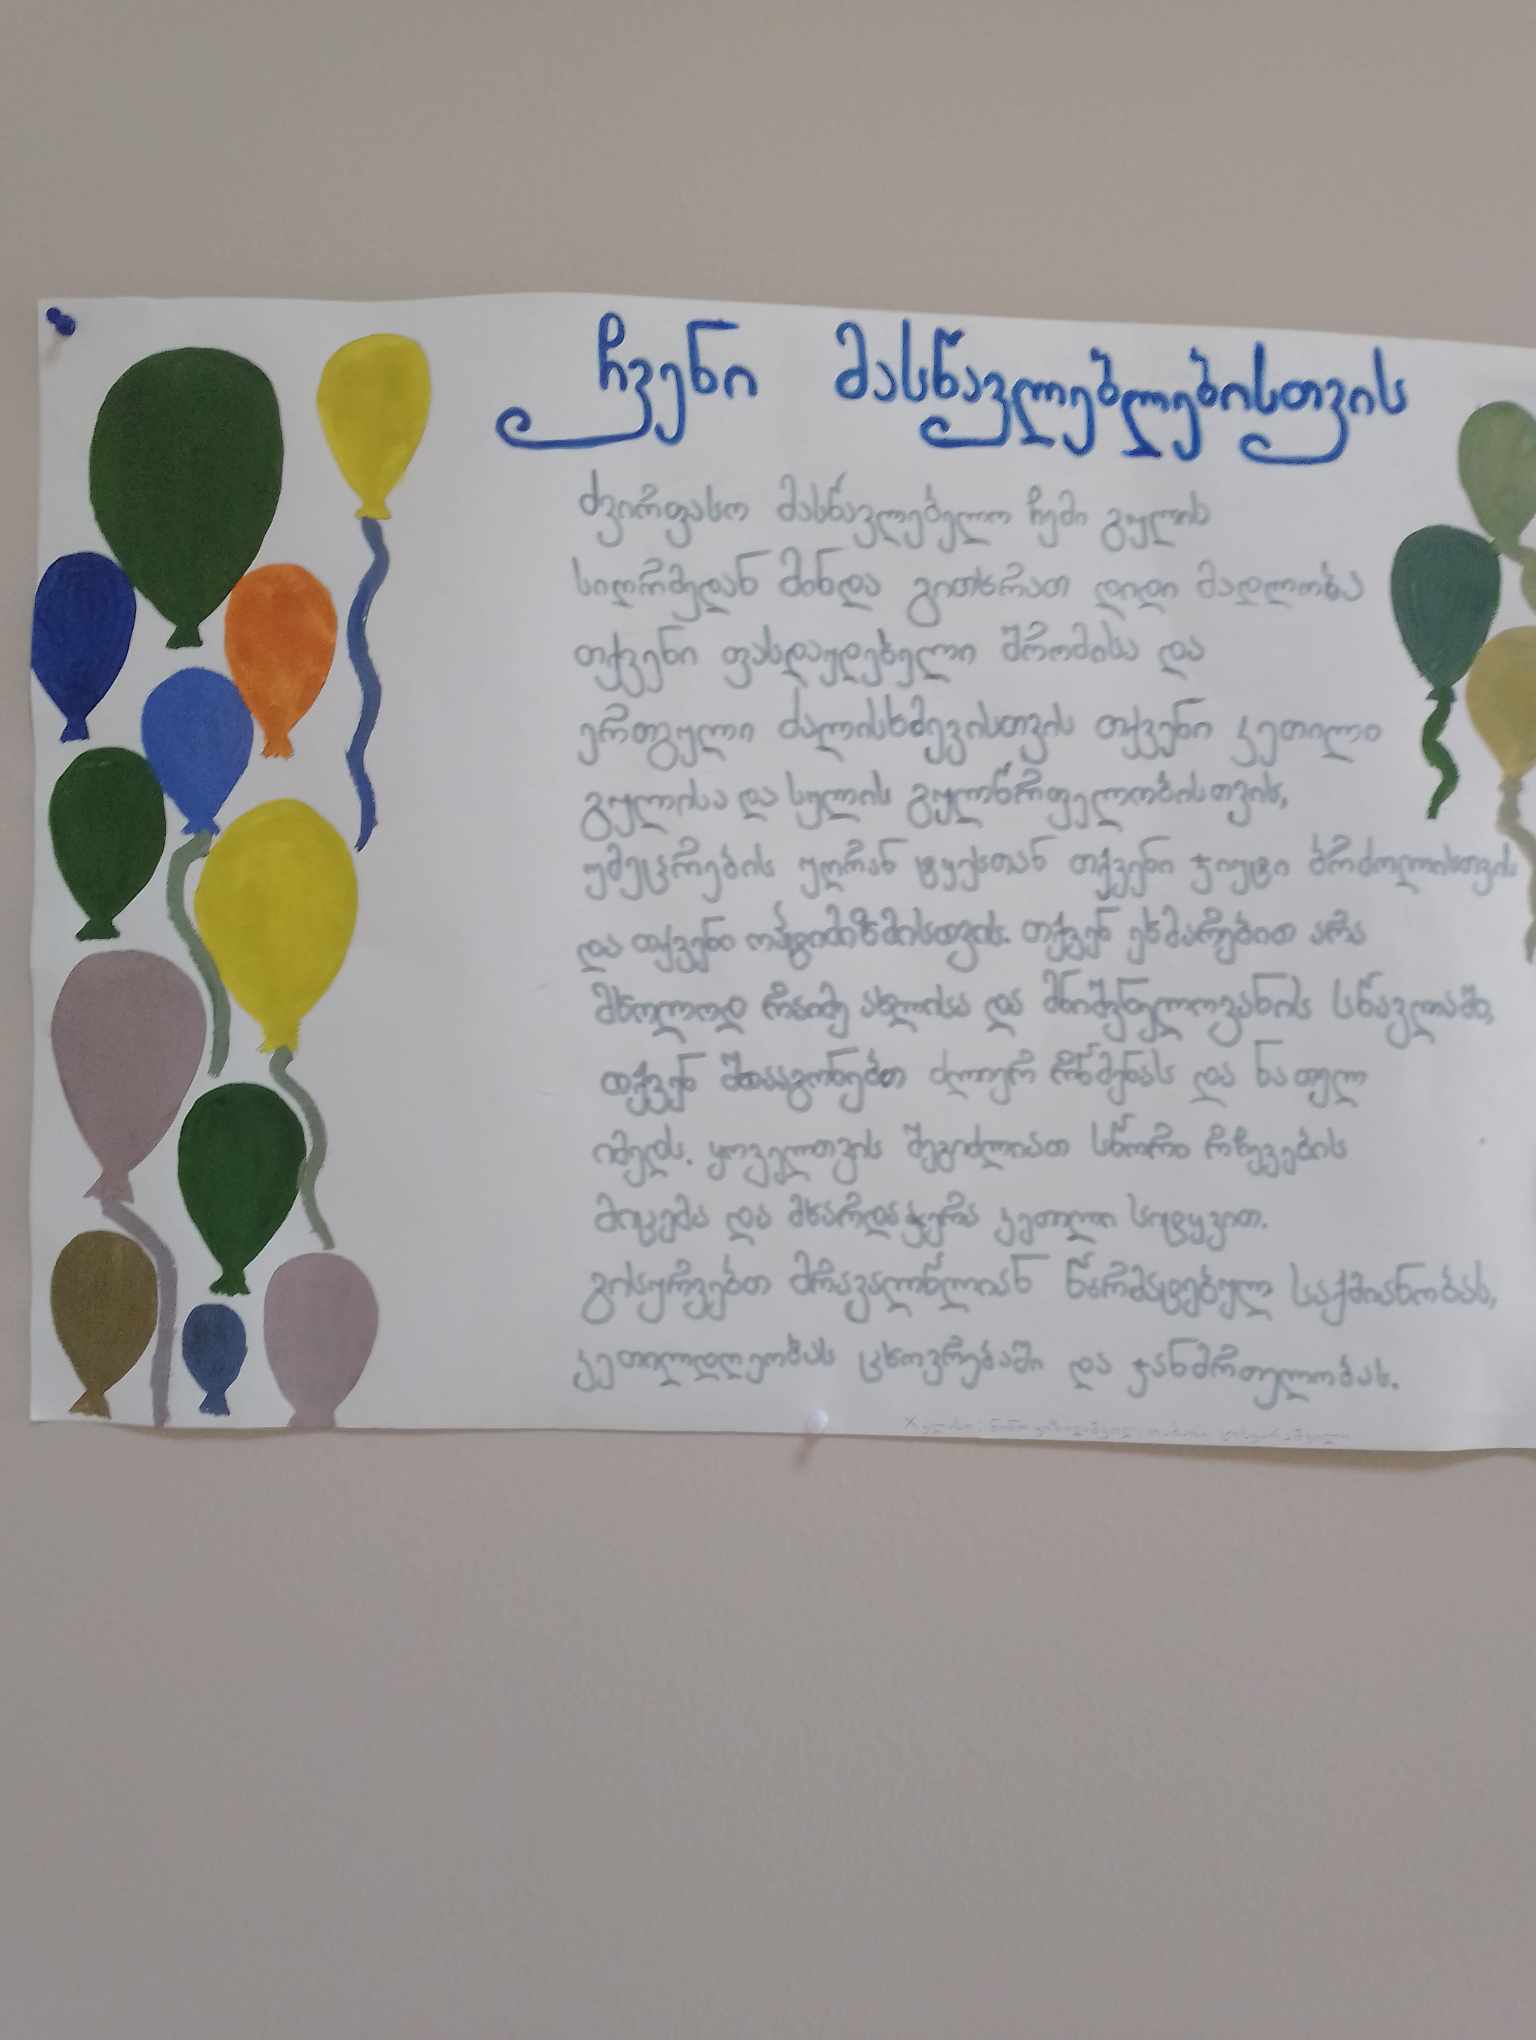 ჩვენი მასწავლებლებისთვის
ძვირფასო მასწავლებელო ჩემი გულის
სიღრმედან მინდა გითხრათ დიდი მადლობა
თქვენი ფასდაუდებელი შრომისა და
ერთგული ძალისხმევისთვის თქვენი კეთილი
გულისა და სულის გულწრფელობისთვის,
უმეცრების უღრან ტყესთან თქვენი ჯიუტი ბრძოლისთვის
და თქვენი ოპტიმიზმისთვის. თქვენ ეხმარებით არა
მხოლოდ რაიმე ახლისა და მნიშვნელოვანის სწავლაში,
თქვენ შთააგონებთ ძლიერ რწმენას და ნათელ
იმედს. ყოველთვის შეგიძლიათ სწორი რჩევების
მიცემა და მხარდაჭერა კეთილი სიტყვით.
გისურვებთ მრავალწლიან წარმატებულ საქმიანობას,
კეთილდღეობას ცხოვრებაში და ჯანმრთელობას.